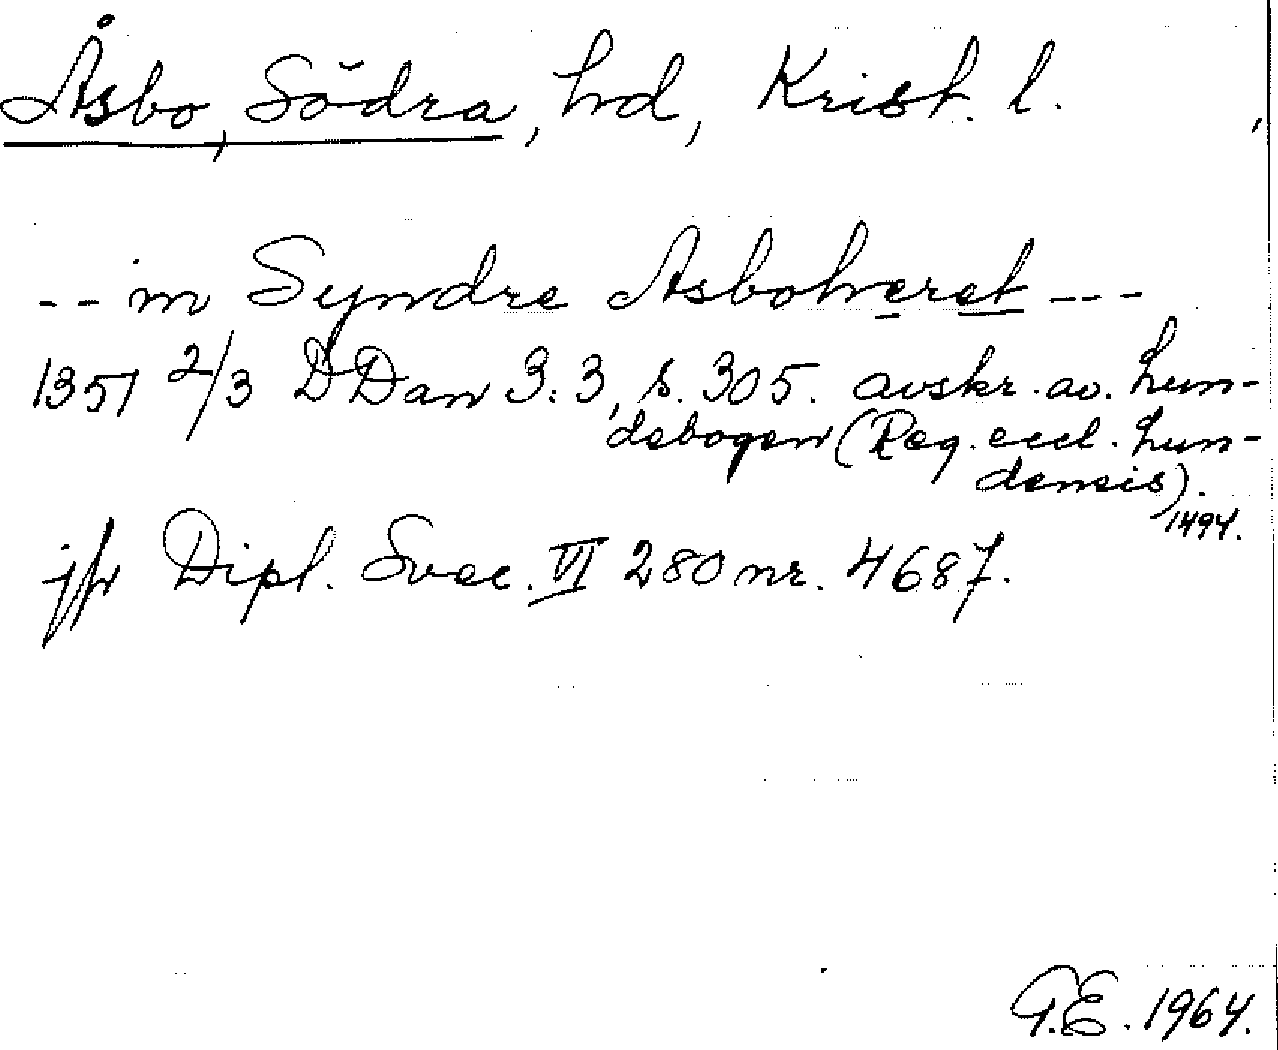 Åsbo, Södra, hd, Krist. l.
-- in Syndre Asbohæret ---
1351 2/3 DDan 3:3, s. 305. avskr. av Lun-
debogen (Reg. eccl. Lun-
densis)
1494.
jfr Dipl. Svec. VI 280 nr. 4687.
G.E. 1964.